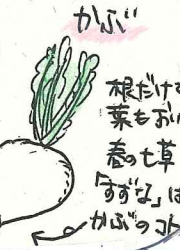 かぶ
根だけで
葉もおい
春の七草
「すずな」は
かぶのコト